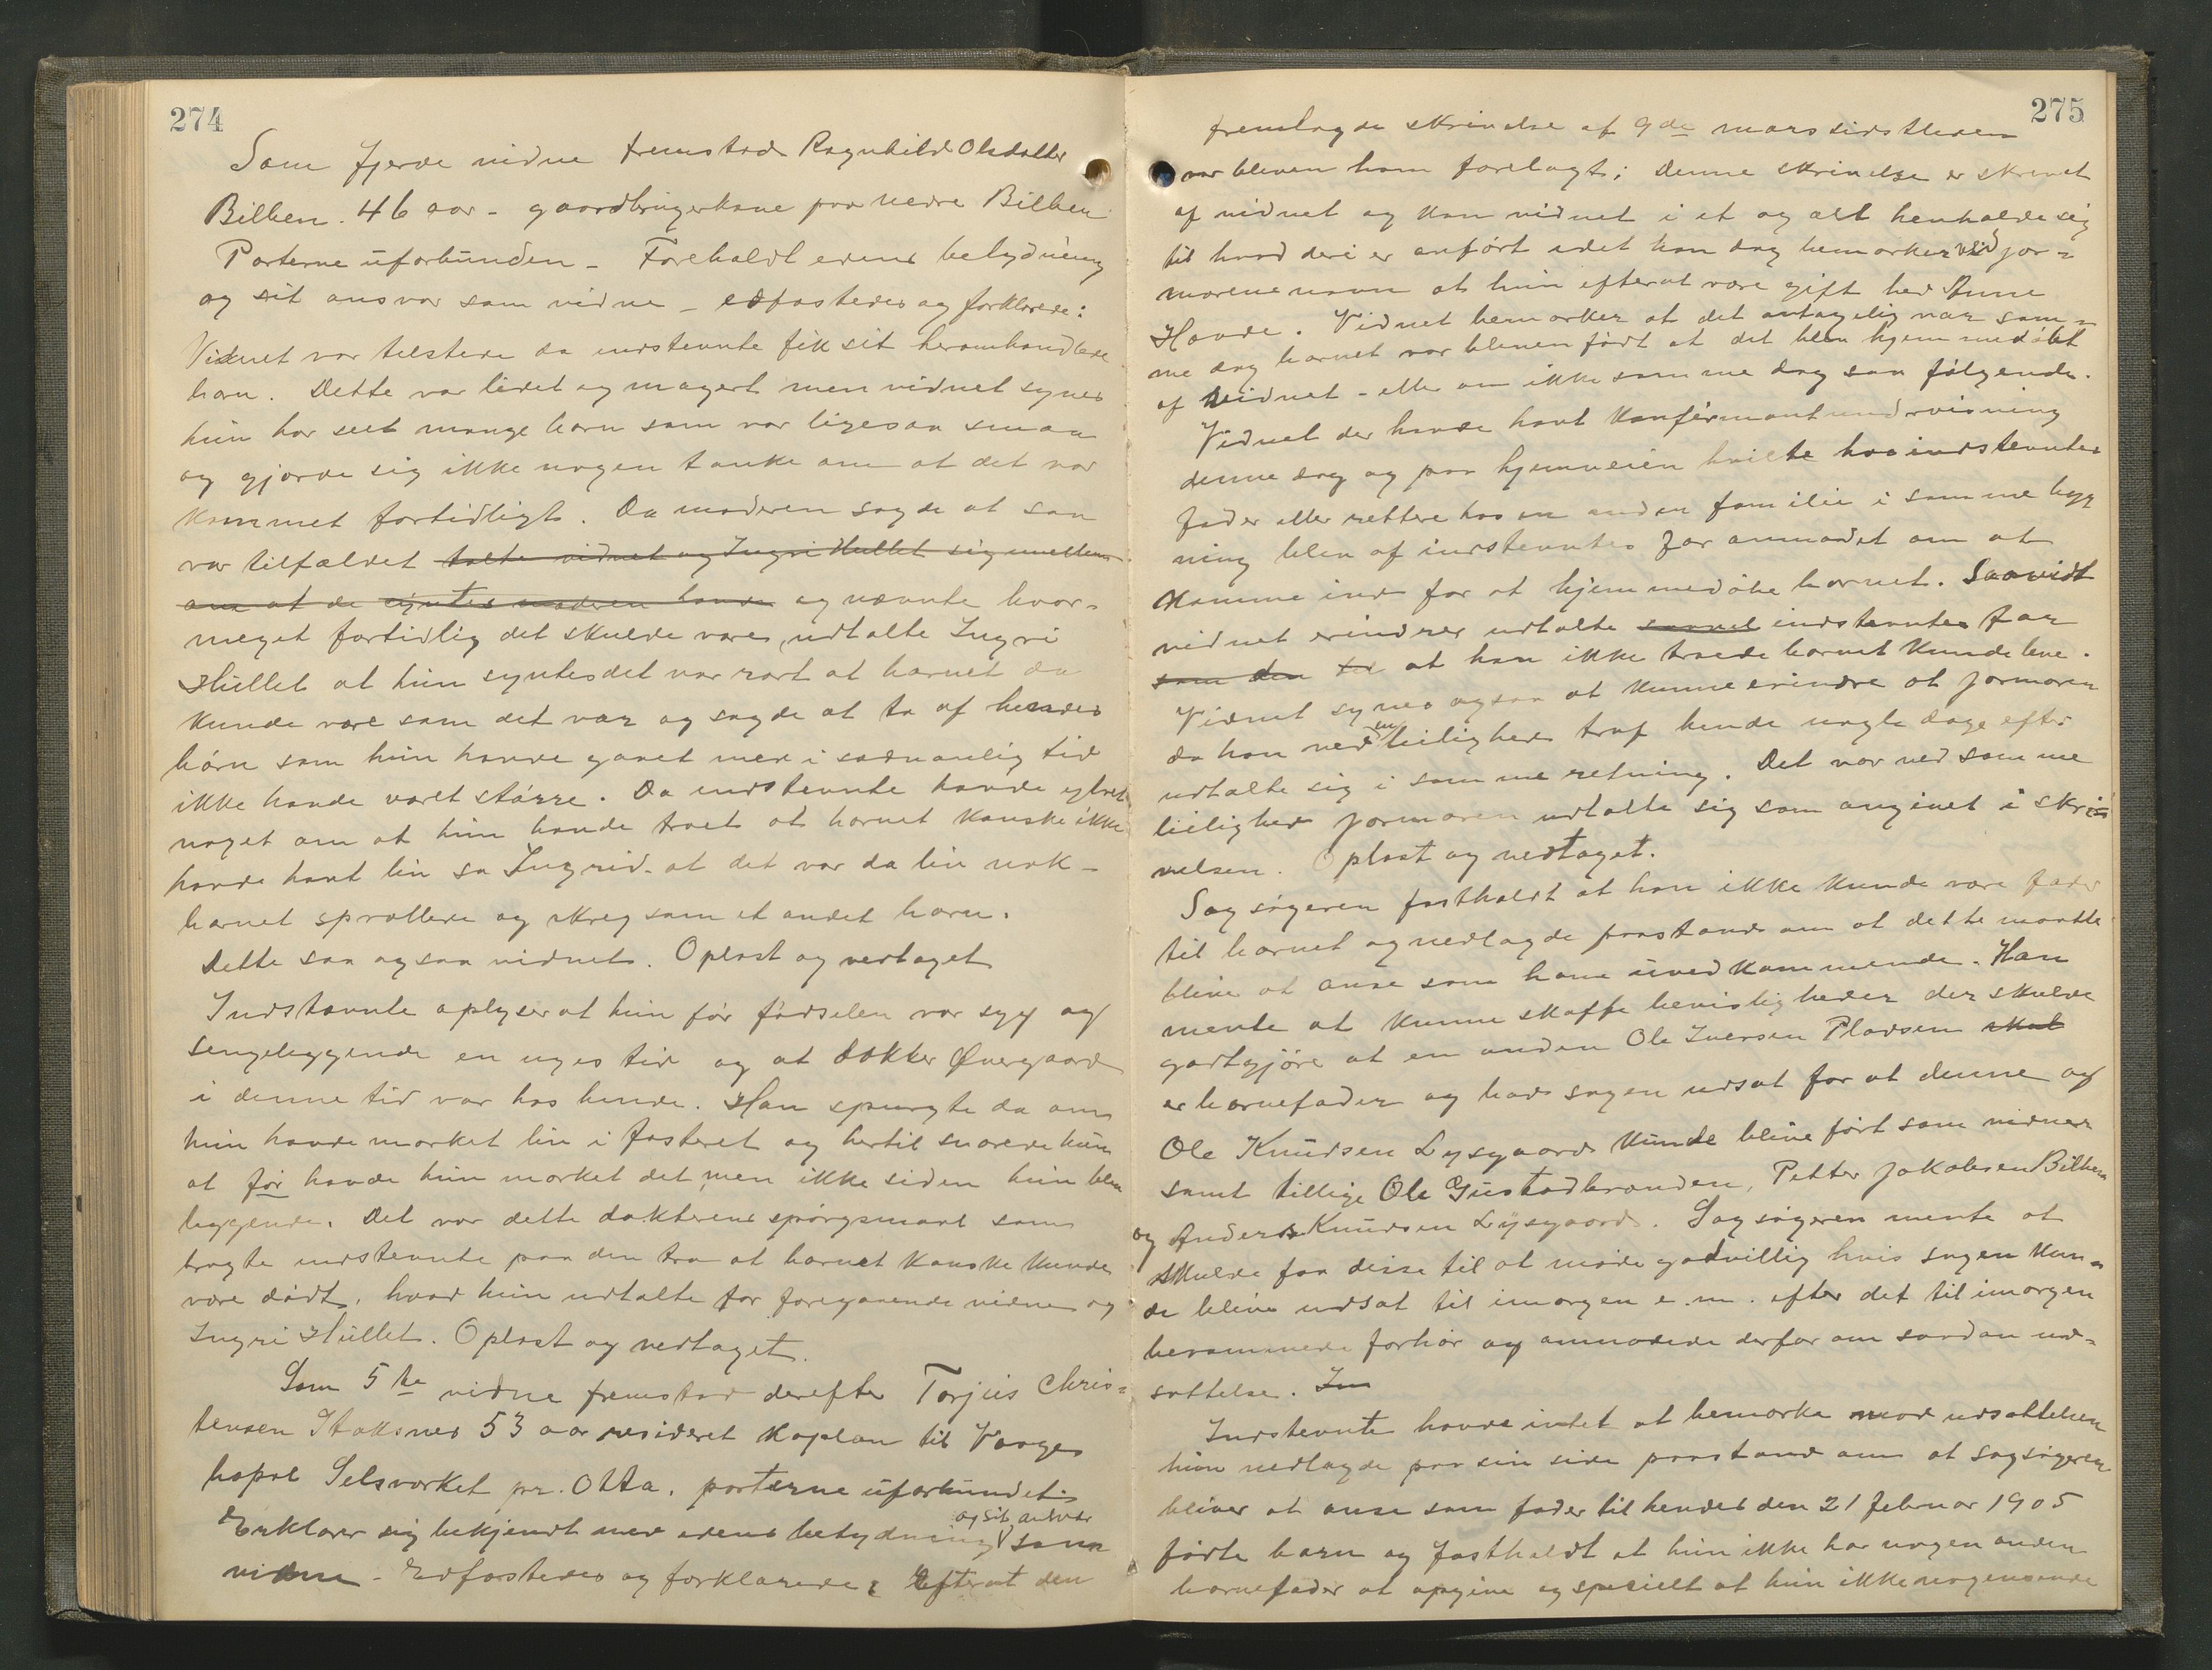 274
Som fjerde vidne fremstod Ragnhild Olsdatter
Bilben. 46 aar - gaardbrugerkone paa nedre Bilben
Parterne uforbunden - Foreholdt edens betydning
og sit ansvar som vidne - edfæstedes og forklarede:
Vidnet var tilstede da indstevnte fik sit heromhandlede
barn. Dette var lidet og magert men vidnet synes
hun har seet mange barn som var ligesaa smaa
og gjorde sig ikke nogen tanke om at det var
kommet fortidligt. Da moderen sagde at saa
var tilfældet talte vidnet og Ingri Hullet sig imellem
om at de syntes moderen havde og nævnte hvor-
meget fortidlig det skulde være, udtalte Ingri
Hullet at hun syntes det var rart at barnet da
kunde være som det var og sagde at to af hendes
børn som hun havde gaaet med i sædvanlig tid
ikke havde været større. Da indstevnte havde ytret
noget om at hun havde troet at barnet kanske ikke
havde havt liv sa Ingrid at det var da liv nok -
barnet sprællede og skreg som et andet barn.
Dette saa ogsaa vidnet. Oplæst og vedtaget
Indstævnte oplyser at hun før fødselen var syg og
sengeliggende en uges tid og at dokter Øvergaard
i denne tid var hos hende. Han spurgte da om
hun havde mærket liv i fosteret og hertil svarede hun
at før havde hun mærket det, men ikke siden hun blev
liggende. Det var dette dokterens spørgsmaal som
bragte indstevnte paa den tro at barnet kanske kunde
være dødt, hvad hun udtalte for foregaaende vidne og
Ingri Hullet. Oplæst og vedtaget.
Som 5te vidne fremstod derefter Torjus Chris=
tensen Stoksnes 53 aar resideret Kaplan til Vaage
bopæl Selsværket pr. Otta, parterne uforbundet.
Erklærer sig bekjendt med edens betydning og sit ansvar som
vidne - Edfæstedes og forklarede: Efterat den
275
fremlagde skrivelse af 9de mars sidstleden
var bleven ham forelagt; Denne skrivelse er skrevet
af vidnet og kan vidnet i et og alt henholde sig
til hvad deri er anført idet han dog bemærker ved jor=
morens navn at hun efterat være gift hed Anne
Hovde. Vidnet bemærker at det antagelig var sam=
me dag barnet var bleven født at det blev hjemmedøbt
af vidnet - eller om ikke samme dag saa følgende.
Vidnet der havde havt konfirmantundervisning
denne dag og paa hjemveien hvilte hos indstevntes
fader eller rettere hos en anden familie i samme byg
ning blev af indstevntes far anmodet om at
komme ind for at hjemmedøbe barnet. Saavidt
vidnet erindrer udtalte saavel indstevntes far
som den til at han ikke troede barnet kunde leve.
Vidnet synes ogsaa at kunne erindre at jormoren
da han ved en leilighed traf hende nogle dage efter
udtalte sig i samme retning. Det var ved samme
leilighed jormoren udtalte sig som angivet i skri=
velsen. Oplæst og vedtaget.
Sagsøgeren fastholdt at han ikke kunde være fader
til barnet og nedlagde paastand om at dette maatte
blive at anse som ham uvedkommende. Han
mente at kunne skaffe bevisligheder der skulde
godtgjøre at en anden Ole Iversen Pladsen skal
er barnefader og bad sagen udsat for at denne og
Ole Knudsen Lysgaard kunde blive ført som vidner
samt tillige Ole Gustadbraaden, Petter Jakobsen Bilben
og Anders Knudsen Lysgaard. Sagsøgeren mente at
skulde faa disse til at møde godvillig hvis sagen kun=
de blive udsat til imorgen e.m. efter det til imorgen
berammede forhør og anmodede derfor om saadan ud=
sættelse. Im
Indstevnte havde intet at bemærke mod udsættelsen
hun nedlagde paa sin side paastand om at sagsøgeren
bliver at anse som fader til hendes den 21 februar 1905
fødte barn og fastholdt at hun ikke har nogen anden
barnefader at opgive og specielt at hun ikke nogensinde